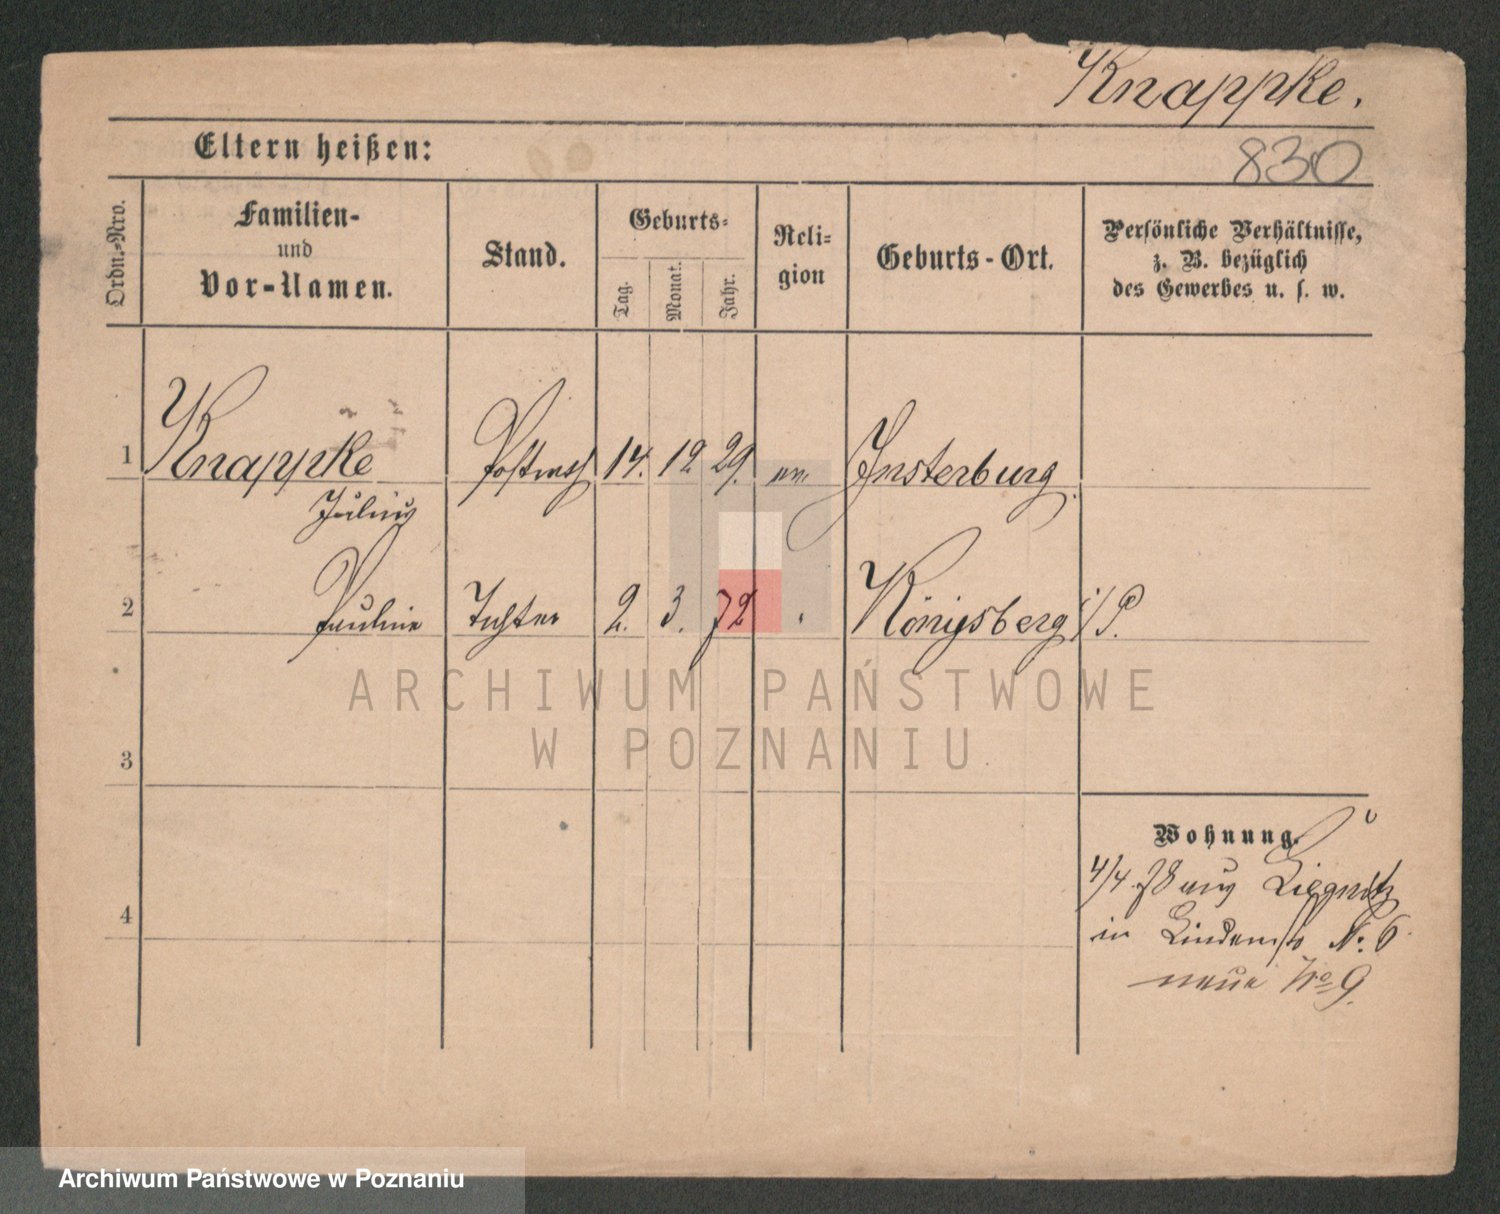 Knappke.
830
Eltern heißen:
Ordn.-Nro.
Familien-
und
Vor-Namen.
Stand.
Geburts-
Tag.
Monat.
Jahr.
Reli-
gion
Geburts-Ort.
Persönliche Verhältnisse,
z. B. bezüglich
des Gewerbes u. s. w.
1 Knappke 14. 12 29. ev. Insterburg
Julius
2 Pauline Tochter 2. 3. 72 " Königsberg i/P.
ARCHIWUM PAŃSTWOWE
W POZNANIU
3
Wohnung.
4/4. 78 aus Liegnitz
in Lindenstr No. 6
neue No 9.
4
Archiwum Państwowe w Poznaniu